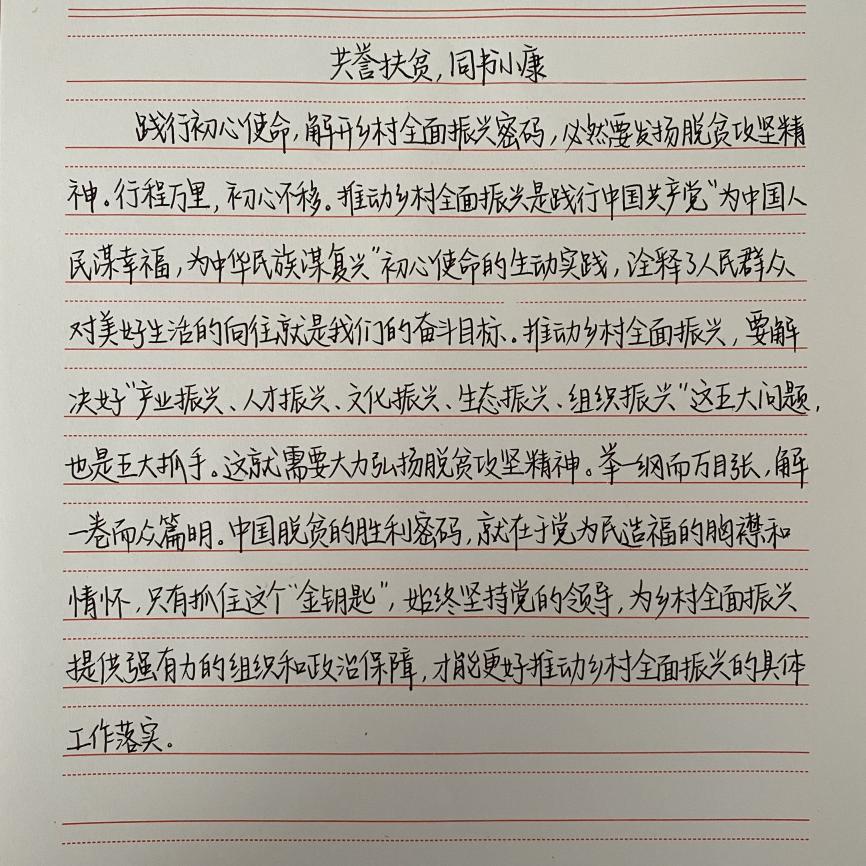 共誉扶贫，同书小康
践行初心使命，解开乡村全面振兴密码，必然要发扬脱贫攻坚精
神。行程万里，初心不移。推动乡村全面振兴是践行中国共产党“为中国人
民谋幸福，为中华民族谋复兴”初心使命的生动实践，诠释了人民群众
对美好生活的向往就是我们的奋斗目标。推动乡村全面振兴，要解
决好“产业振兴、人才振兴、文化振兴、生态振兴、组织振兴”这五大问题，
也是五大抓手。这就需要大力弘扬脱贫攻坚精神。举一纲而万目张，解
一卷而众篇明。中国脱贫的胜利密码，就在于党为民造福的胸襟和
情怀，只有抓住这个“金钥匙”，始终坚持党的领导，为乡村全面振兴
提供强有力的组织和政治保障，才能更好推动乡村全面振兴的具体
工作落实。